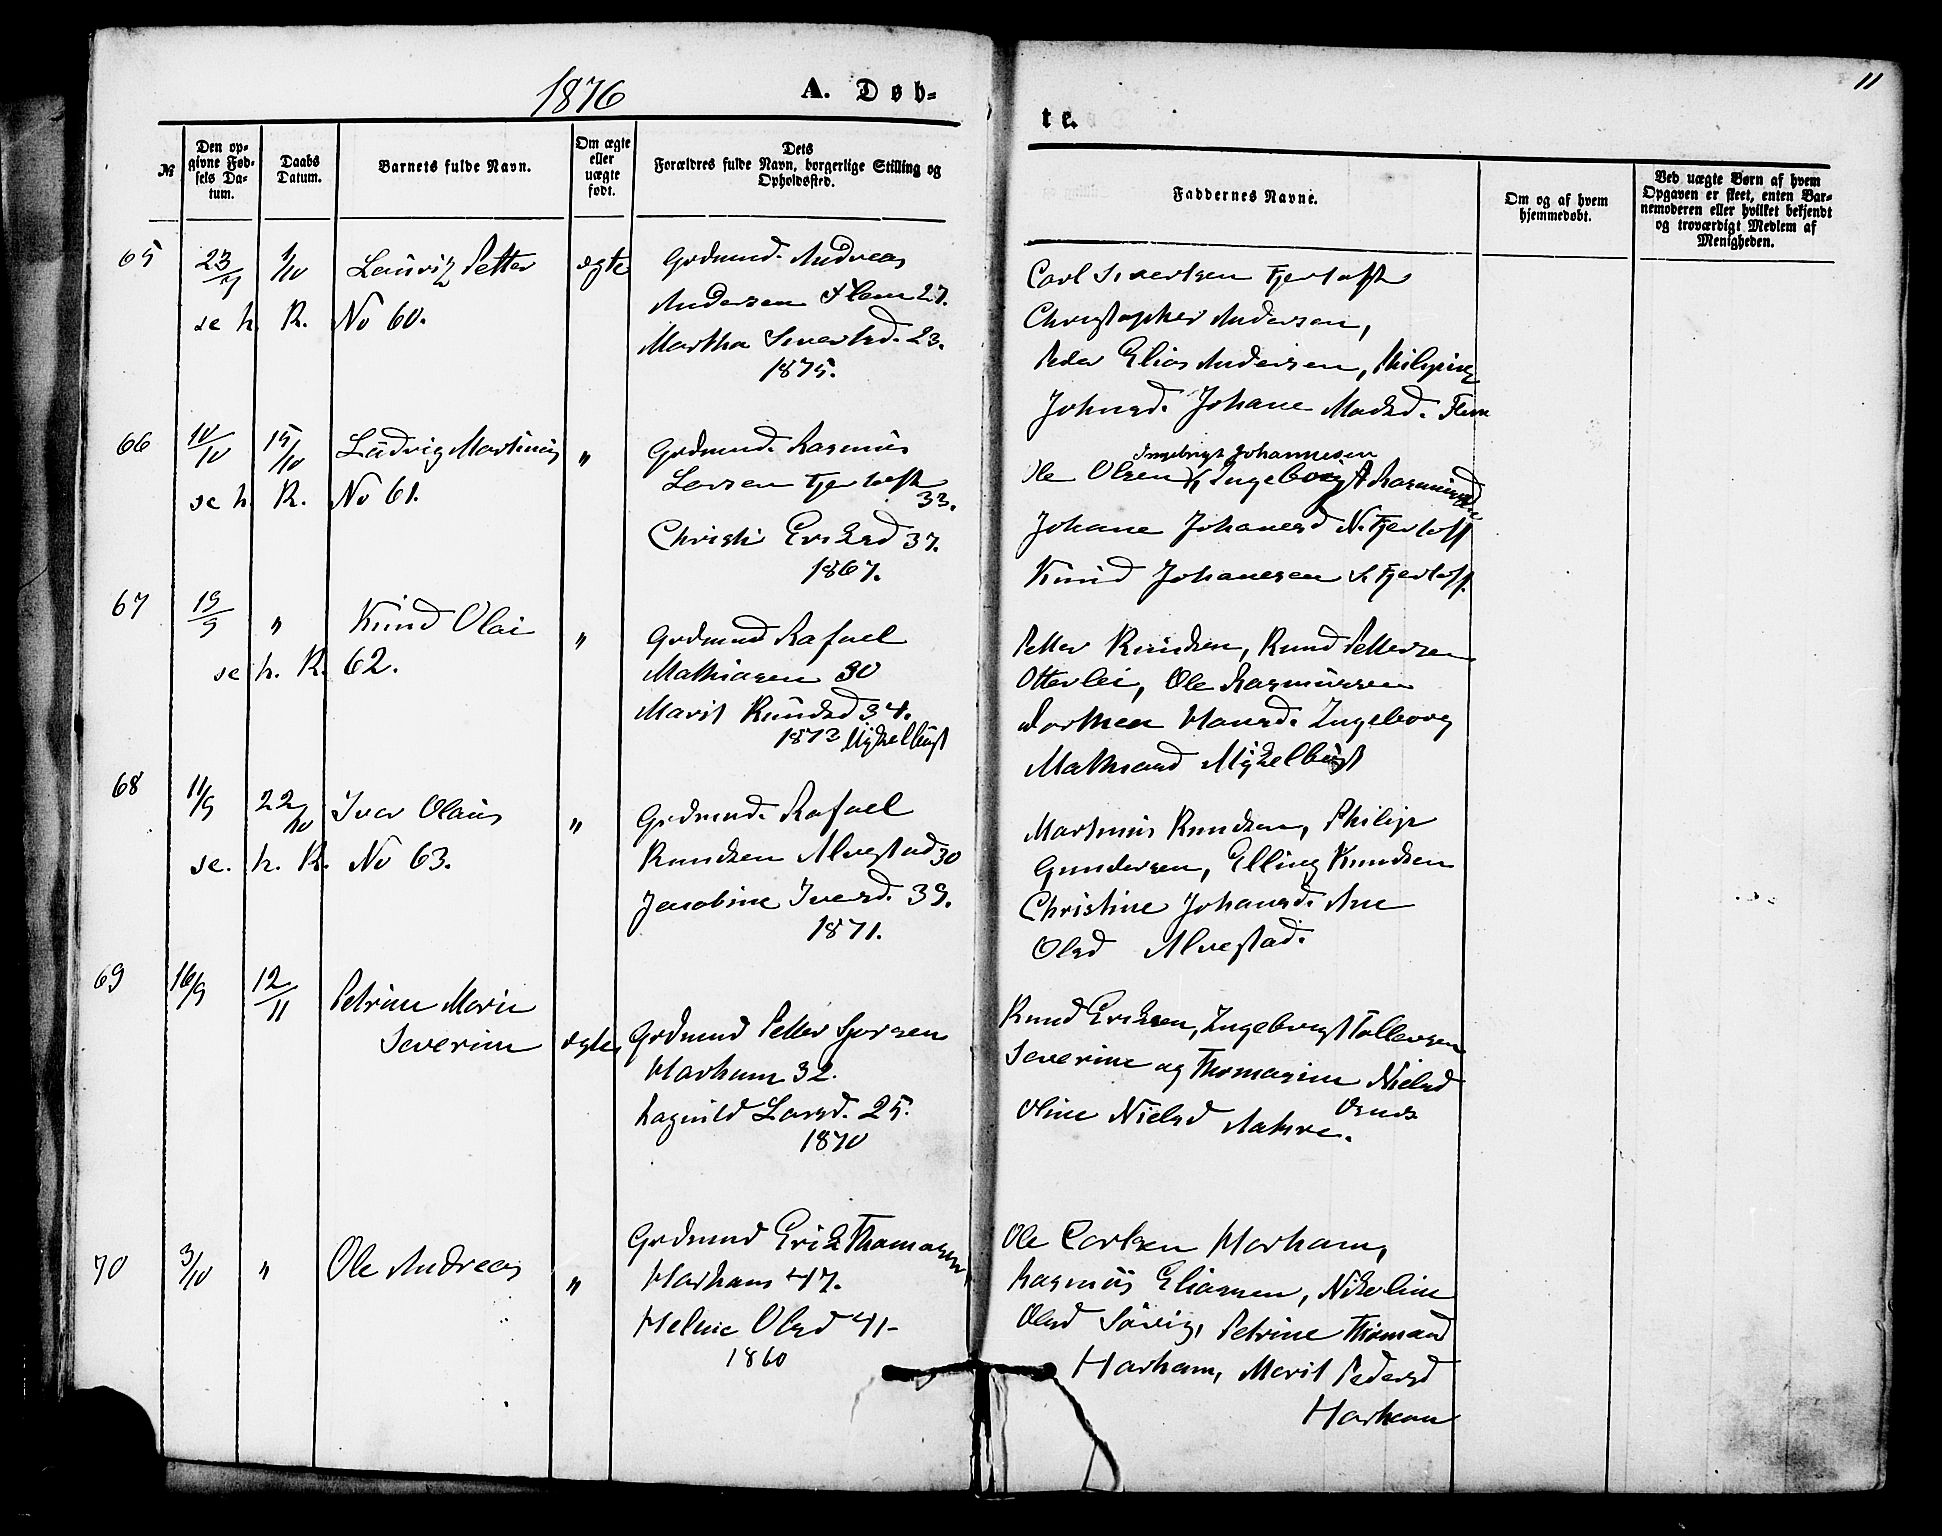 1876
A. Døb-
te.
11
№
Den op-
givne Fød-
sels Da-
tum.
Daabs
Datum.
Barnets fulde Navn.
Om ægte
eller
uægte
født.
Dets
Forældres fulde Navn, borgerlige Stilling og
Opholdssted.
Faddernes Navne.
Om og af hvem
hjemmedøbt.
Ved uægte Børn af hvem
Opgaven er skeet, enten Bar-
nemoderen eller hvilket bekjendt
og troværdigt Medlem af
Menigheden.
65 23/9 1/10 Lauritz Petter ægte
se h. R. No 60.
Grdmnd. Andreas
Andersen Flem 27.
Martha Sivertsd. 23.
1875.
Carl Sivertsen Fjertoft
Christopher Andersen,
Peder Elias Andersen,
Johnsd. Johane Madsd. Flem
66 10/10 15/10 Ludvig Martinus "
se h. R. No 61.
Grdmnd. Rasmus
Larsen Fjertoft
33.
Christi Eriksd 37.
1867.
Ingebrigt Johannesen
Ole Olsen Ingeborg A Rasmusd
Johane Johanesd N. Fjertoft
Knud Johanesen S. Fjertoft.
67 19/9 " Knud Olai "
se h. R. 62.
Grdmnd Rafael
Mathiasen 30
Marit Knudsd 34.
1873 Myklebust
Petter Knudsen, Knud Pettersen
Otterlei, Ole Rasmussen
Dorthea Hansd. Ingeborg
Mathiasd Myklebust
68 11/9 22/10 Iver Olaus "
se. h. R. No 63.
Grdmnd. Rafael
Knudsen Alvestad 30
Jacobine Iversd. 33.
1871.
Martinus Knudsen, Philip
Gundersen, Elling Knudsen
Christine Johansd. Ane
Olsd Alvestad.
69 16/9 12/11 Petrine Marie
Severine ægte
Grdmnd Petter Sjursen
Harham 32.
Ragnild Larsd. 25.
1870
Knud Eriksen, Ingebrigt Tollevsen
Severine og Thomasine Nielsd
Oline Nielsd Aakre.
70 3/10 " Ole Andreas "
Grdmnd Erik Thomasen
Harham 47.
Helene Olsd 41-
1860
Ole Carlsen Harham,
Rasmus Eliassen, Nikoline
Olsd Søvig, Petrine Thomasd
Harham, Marit Pedersd
Harham